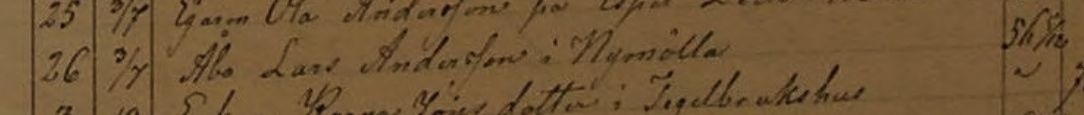 25 3/7 Egaren Ola Andersson på
26 3/7 Åbo Lars Andersson i Nymölla 56 5/12
Jöns dotter i Tegelbrukshus